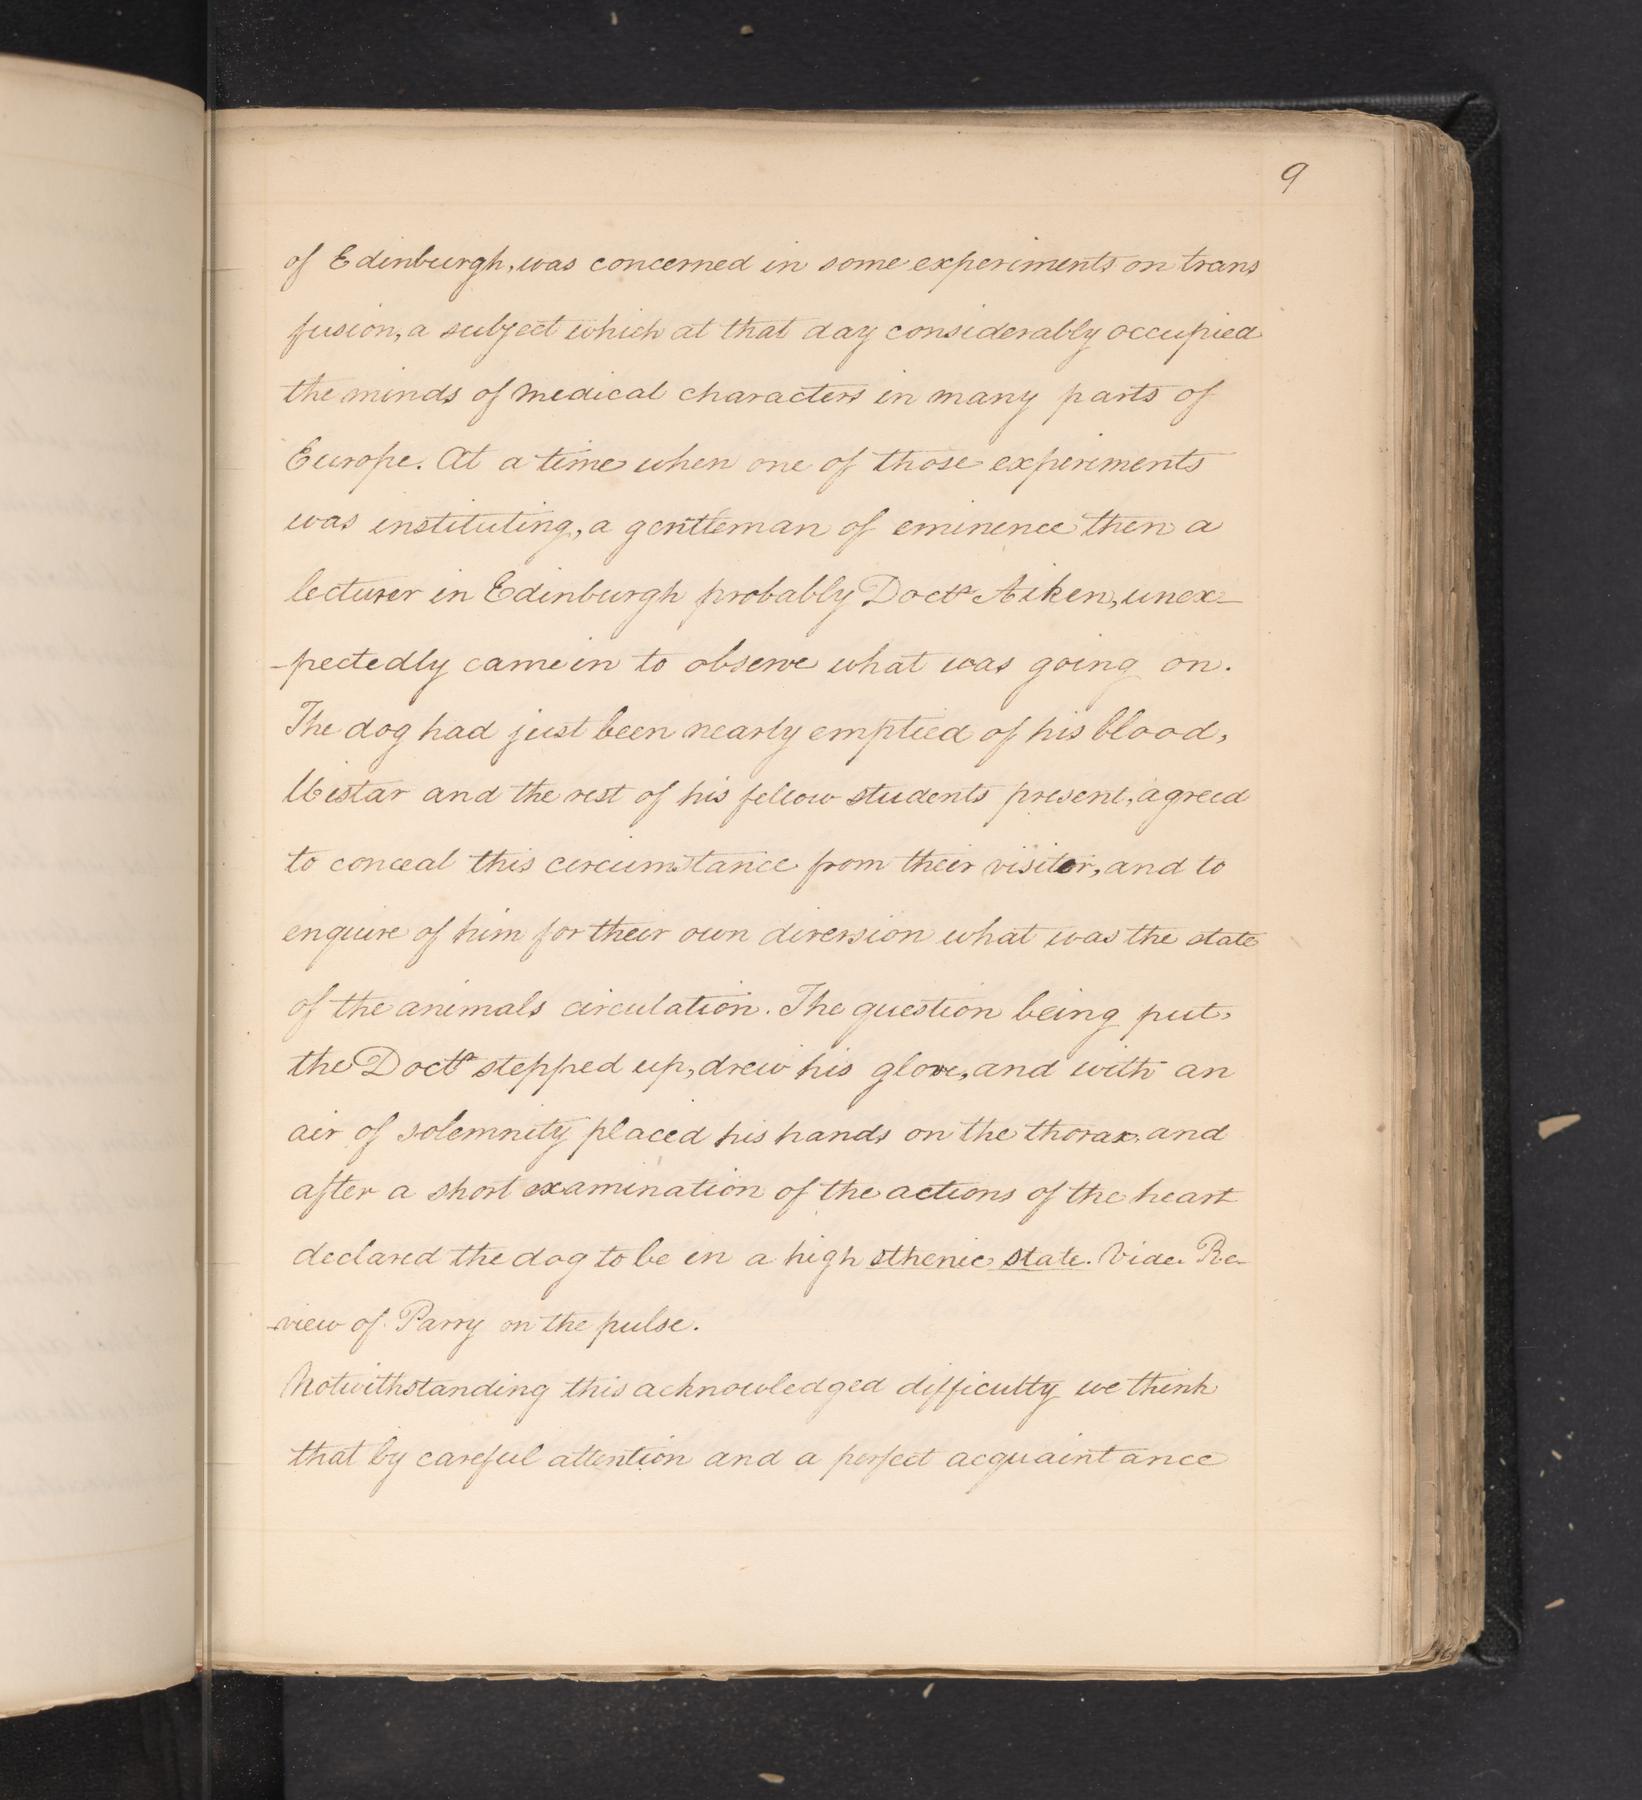 9
of Edinburgh, was concerned in some experiments on trans
fusion, a subject which at that day considerably occupied
the minds of medical characters in many parts of
Europe. At a time when one of those experiments
was instituting, a gentleman of eminence then a
lecturer in Edinburgh probably Doctr Aiken, unex-
-pectedly came in to observe what was going on.
The dog had just been nearly emptied of his blood,
Wistar and the rest of his fellow students present, agreed
to conceal this circumstance from their visitor, and to
enquire of him for their own diversion what was the state
of the animals circulation. The question being put,
the Doctr stepped up, drew his glove, and with an
air of solemnity placed his hands on the thorax, and
after a short examination of the actions of the heart
declared the dog to be in a high sthenic state. Vide. Re-
-view of Parry on the pulse.
Notwithstanding this acknowledged difficulty we think
that by careful attention and a perfect acquaintance